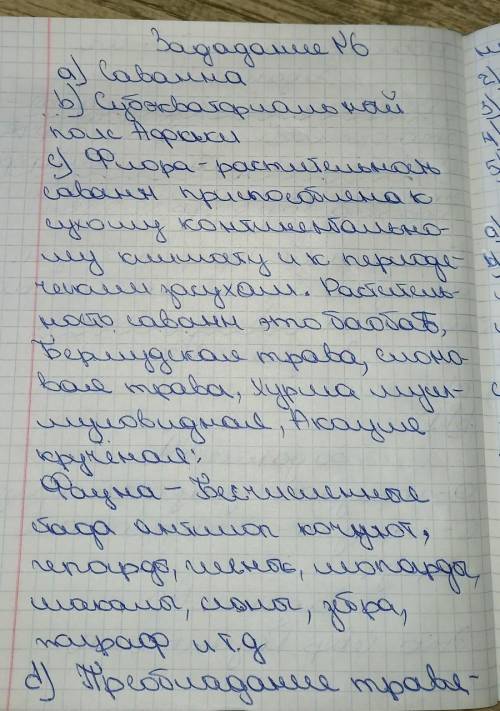 Зададание №6
a) Саванна
b) Субэкваториальный
пояс Африки
c) Флора - растительность
саванн приспособлена к
сухому континентально-
му климату и к периоде-
ческим засухам. Раститель-
ность саванн это баобаб,
Бермудская трава, слоно-
вая трава, хурма муш-
муловидная, Акация
кручёная;
Фауна - Бесчисленные
стада антилоп кочуют,
гепарды, гиены, леопарды,
шакалы, слоны, зебра,
жираф и т.д
d) Преобладание травя-